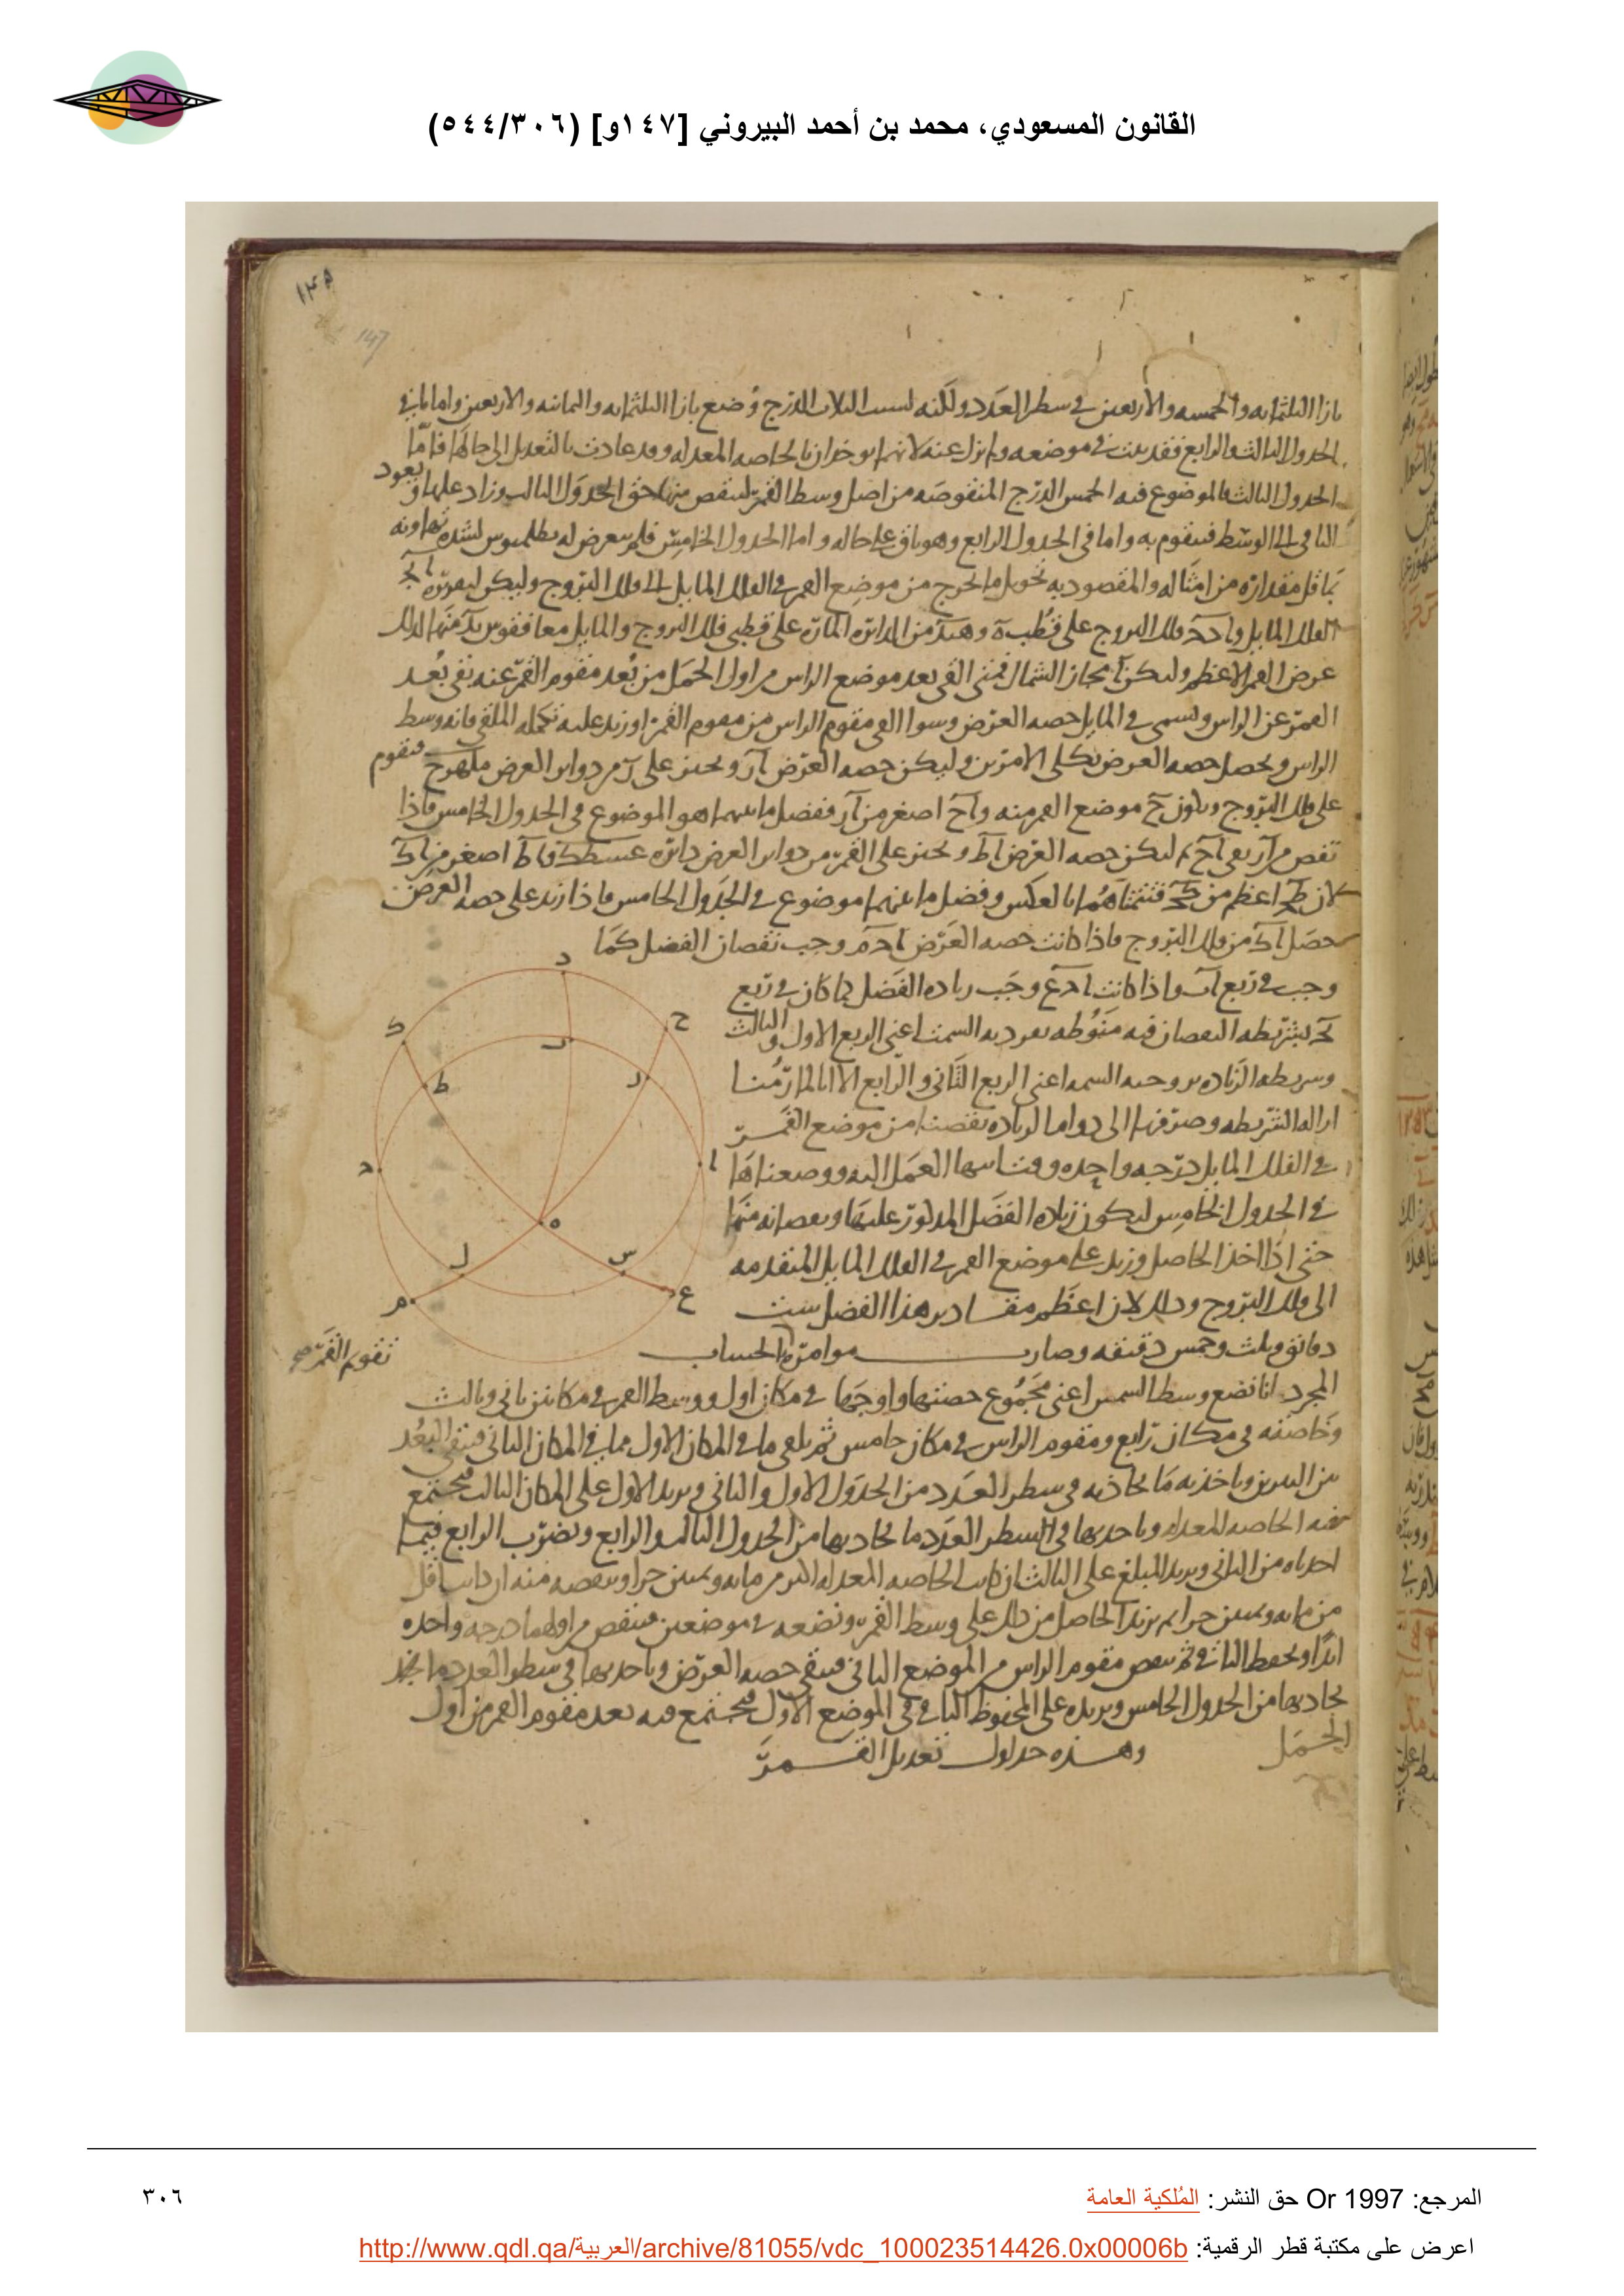 القانون المسعودي، محمد بن أحمد البيروني [١٤٧و] (٥٤٤/٣٠٦)
١٤٥
147
بازا الثلثمايه والخمسه والاربعين في سطر العدد ولكنه لسبب الثلاث الدرج وضع بازا الثلثمايه والثمانيه والاربعين واما باقي
الجدول الثالث والرابع فقد بينت في موضعه ولم نزل عنه لانهما يوخذان بالخاصه المعدله وقد عادت بالتعديل الى حالها فاما
الجدول الثالث فالموضوع فيه الخمس الدرج المنقوصه من اصل وسط القمر لينقص منها حق الجدول الثالث وزاد عليها ويعود
الباقي الى الوسط فيتقوم به واما في الجدول الرابع وهو باق على حاله واما الجدول الخامس فلم يتعرض له بطلميوس لشده تهاونه
بما قل مقداره من امثاله والمقصود به تحويل ما خرج من موضع القمر في الفلك المايل الى فلك البروج وليكن لتعرفه
الفلك المايل و فلك البروج على قطب ه و من الدائره الماره على قطبي فلك البروج والمايل معا فقوس منها لذلك
عرض القمر الاعظم وليكن ا مجاز الشمال فمتى القي بعد موضع الراس من اول الحمل من بعد مقوم القمر عنه بقي بعد
القمر عن الراس ويسمى في المايل حصه العرض وسوا القي مقوم الراس من مقوم القمر او زيد عليه تكمله الملقى فانه وسط
الراس ويحصل حصه العرض بكلي الامرين وليكن حصه العرض ار ونجيز على ر من دواير العرض فيقوم
على فلك البروج ويكون ح موضع القمر منه واح اصغر من ار ففضل ما بينهما هو الموضوع في الجدول الخامس فاذا
نقص من ار بقي اح ثم ليكن حصه العرض اط ونجيز على القمر من دواير العرض دائره فاط اصغر من اك
لان اعظم من فتتمتاهما بالعكس وفضل ما بينهما موضوع في الجدول الخامس فاذا زيد على حصه العرض
حصل اك من فلك البروج فاذا كانت حصه العرض وجب نقصان الفضل كما
وجب في ربع اب واذا كانت وجب زياده الفضل كما كان في ربع
بشريطه النقصان فيه منوطه بفرديه السمت اعني الربع الاول والثالث
وشريطه الزياده بزوجيه السمه اعني الربع الثاني والرابع الا انا لما رمنا
ازاله الشريطه وصرفها الى دوام الزياده نقصنا من موضع القمر
في الفلك المايل درجه واحده العمل اليه ووضعناها
في الجدول الخامس ليكون زياده الفضل المذكور عليها ونقصانه منها
حتى اذا اخذ الحاصل وزيد على موضع القمر في الفلك المايل المتقدمه
الى فلك البروج وذلك لان اعظم مقادير هذا الفضل ست
دقائق وثلث وخمس دقيقه وصارت موامره الحساب
تقويم القمر
المجرد انا نضع وسط الشمس اعني مجموع حصتها واوجها في مكان اول ووسط القمر في مكانين ثاني وثالث
وخاصته في مكان رابع ومقوم الراس في مكان خامس ثم نلقي ما في المكان الاول مما في المكان الثاني فيبقى البعد
بين النيرين وناخذ به ما يحاذيه في سطر العدد من الجدول الاول والثاني ونزيد الاول على المكان الثالث فيجتمع
فيه الخاصه المعدله وناخذ بها في السطر العدد ما يحاذيها من الجدول الثالث والرابع ونضرب الرابع فيما
اخذناه من الثاني ونزيد المبلغ على الثالث ان كانت الخاصه المعدله اكثر من مايه وثمنين جزا وننقصه منه ان كانت اقل
من مايه وثمنين جزا ثم نزيد الحاصل من ذلك على وسط القمر ونضعه في موضعين فننقص من اولهما درجه واحده
ابدا ونحفظ الباقي ثم ننقص مقوم الراس من الموضع الثاني فيبقى حصه العرض وناخذ بها في سطر العدد ما
يحاذيها من الجدول الخامس ونزيده على المحفوظ الباقي في الموضع الاول فيجتمع فيه بعد مقوم القمر من اول
الحمل وهذه جداول تعديل القمر
المرجع: Or 1997 حق النشر: المُلكية العامة
٣٠٦
اعرض على مكتبة قطر الرقمية: http://www.qdl.qa/العربية/archive/81055/vdc_100023514426.0x00006b